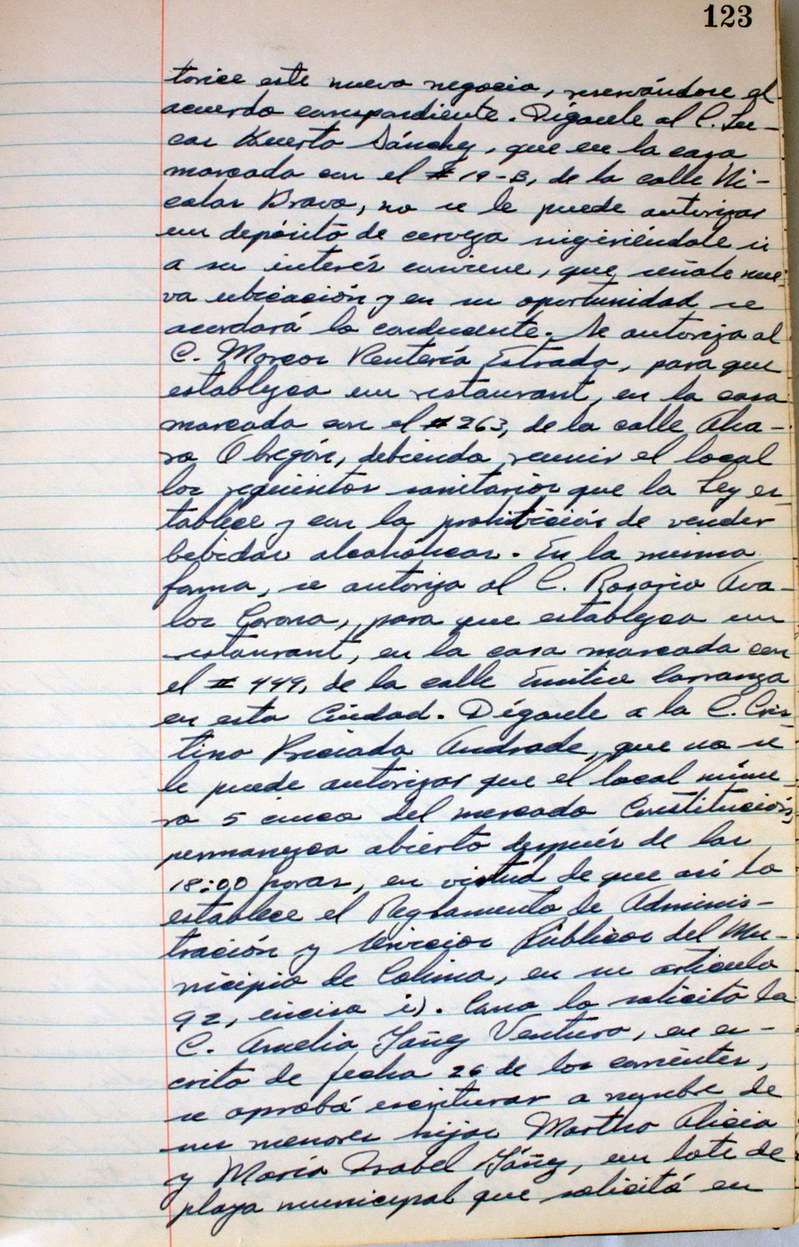 123
torice este nuevo negocio, reservándose el
acuerdo correspondiente. Dígasele al C. Lu-
cas Huerta Sánchez, que en la casa
marcada con el #19-B, de la calle Ni-
colas Bravo, no se le puede autorizar
un depósito de cerveza sugiriéndole si
a su interés conviene, que señale nue-
va ubicación y en su oportunidad se
acordará lo conducente. Se autoriza al
C. Marcos Rentería Estrada, para que
establezca un restaurant, en la casa
marcada con el #263, de la calle Alva-
ro Obregón, debiendo reunir el local
los requisitos sanitarios que la Ley es-
tablece y con la prohibición de vender
bebidas alcohólicas. En la misma
forma, se autoriza al C. Rosario Ava-
los Corona, para que establezca un
restaurant, en la casa marcada con
el # 499, de la calle Emilio Carranza
en esta Ciudad. Dígasele a la C. Cris-
tina Preciado Andrade, que no se
le puede autorizar que el local núme-
ro 5 cinco del mercado Constitución,
permanezca abierto después de las
18:00 horas, en virtud de que así lo
establece el Reglamento de Adminis-
tración y Servicios Públicos del Mu-
nicipio de Colima, en su artículo
92, inciso i). Como lo solicitó la
C. Amelia Yáñez Ventura, en es-
crito de fecha 26 de los corrientes,
se aprobó escriturar a nombre de
sus menores hijas Martha Alicia
y María Isabel Yáñez, un lote de
playa municipal que solicitó en